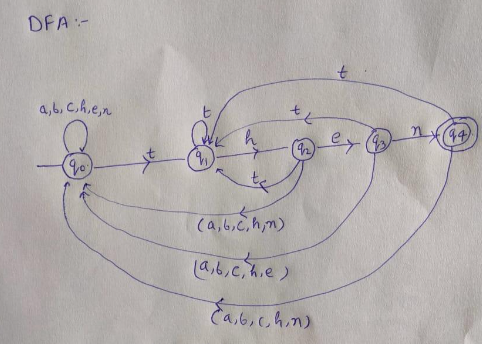 DFA:-
t
a,b,c,h,e,n
t
t
q0
t
q1
h
q2
e
q3
n
q4
t
(a,b,c,h,n)
(a,b,c,h,e)
(a,b,c,h,n)